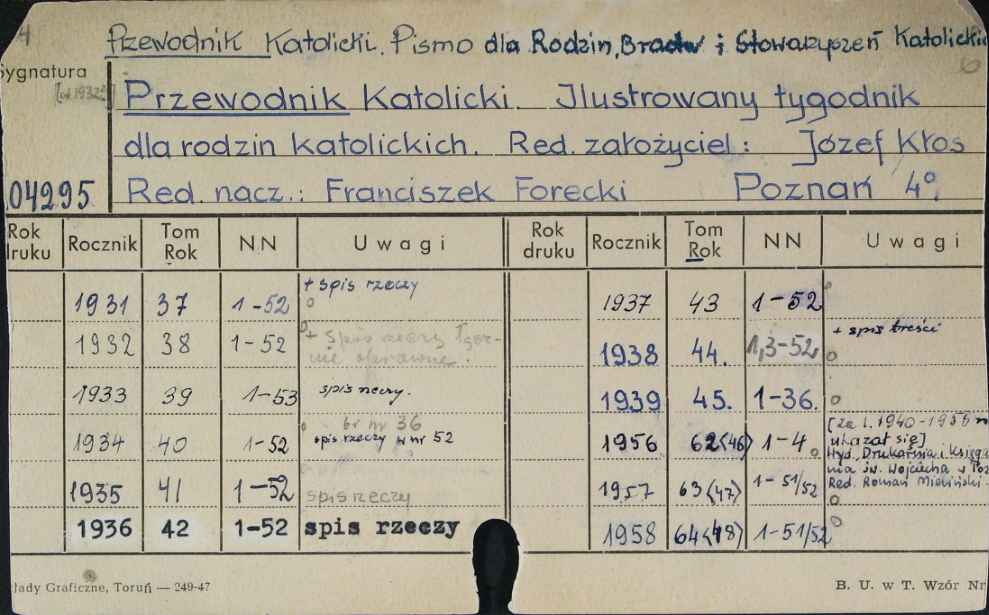 4 Pzewodnik Katolicki. Pismo dla Rodzin, Bractw i Stowarzyszeń Katolickic
Sygnatura
[od 1932]
Przewodnik Katolicki. Ilustrowany tygodnik
dla rodzin katolickich. Red. założyciel: Józef Kłos
04295 Red. nacz.: Franciszek Forecki Poznań 4°.
Rok druku Rocznik Tom Rok NN Uwagi Rok druku Rocznik Tom Rok NN Uwagi
1931 37 1-52 + spis rzeczy
1932 38 1-52 + spis rzeczy
1933 39 1-53 spis rzeczy.
1934 40 1-52 br nr 36
spis rzeczy w nr 52
1935 41 1-52 spis rzeczy
1936 42 1-52 spis rzeczy
1937 43 1-52
1938 44. 1,3-52 + spis treści
1939 45. 1-36.
1956 62(46) 1-4 [za l. 1940-1956 n
ukazał się]
Wyd. Drukarnia i Księga
nia św. Wojciecha w Poz
Red. Roman Mieliński.
1957 63(47) 1-51/52
1958 64(48) 1-51/52
łady Graficzne, Toruń — 249-47
B. U. w T. Wzór Nr